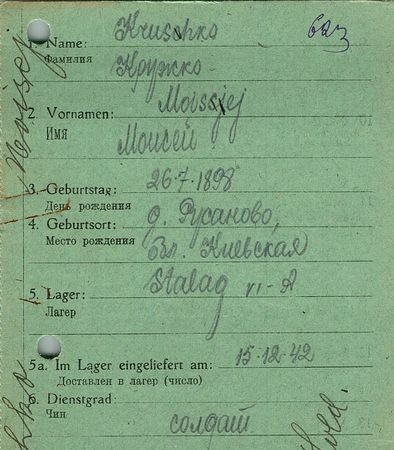 Kruschko
1. Name:
Фамилия
Кружко
Moissjej
2. Vornamen:
Имя
Моисей
3. Geburtstag: 26.7.1898
День рождения
4. Geburtsort: д. Русаново,
Место рождения
Вл. Киевская
Stalag VI-A
5. Lager:
Лагер
5a. Im Lager eingeliefert am: 15.12.42
Доставлен в лагер (число)
6. Dienstgrad:
Чин
солдат
Sold.